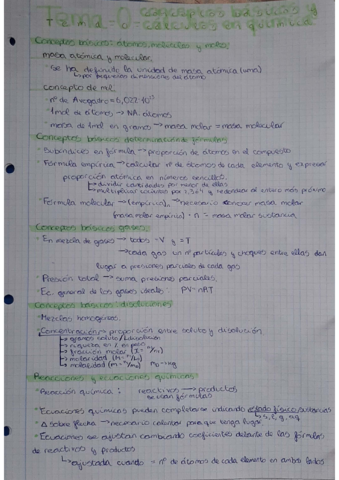 Tema-6 conceptos básicos y cálculos en química
Conceptos básicos: átomos, moléculas y moles
masa atómica y molecular.
- Se ha definido la unidad de masa atómica (uma)
↳ por pequeñas dimensiones del átomo
concepto de mol
- nº de Avogadro = 6,022·10
- 1mol de átomos → NA átomos
- masa de 1mol en gramos → masa molar = masa molecular
Conceptos básicos determinación de fórmulas
- Subíndices en fórmula → proporción de átomos en el compuesto
- Formula empírica → calcular nº de átomos de cada elemento y expresar
proporción atómica en números sencillos.
↳ dividir cantidades por menor de ellas
↳ multiplicar cocientes por 2,3 y redondear al entero más próximo
- Fórmula molecular → (empírica)n → necesario conocer masa molar
(masa molar empírica) · n = masa molar sustancia
Conceptos básicos gases:
- En mezcla de gases → todos = V y = T
↳ cada gas un nº partículas y choques entre ellas dan
lugar a presiones parciales de cada gas
- Presión total → suma presiones parciales.
- Ec. general de los gases ideales: PV = nRT
Conceptos básicos: disoluciones
- Mezclas homogéneas.
- Concentración → proporción entre soluto y disolución
↳ gramos soluto/L disolución
↳ riqueza en % en peso
↳ fracción molar
↳ molaridad
↳ molalidad
Reacciones y ecuaciones químicas
- Reacción química: reactivos → productos
se usan fórmulas
- Ecuaciones químicas pueden completarse indicando estado físico sustancias
↳ s, l, g, aq
- Δ sobre flecha → necesario calentar para que tenga lugar
- Ecuaciones se ajustan cambiando coeficientes delante de las fórmulas
de reactivos y productos
↳ ajustada cuando = nº de átomos de cada elemento en ambos lados